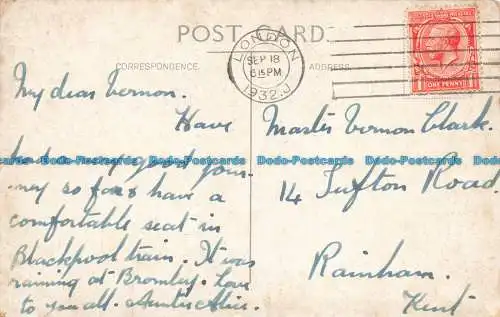 POST CARD
CORRESPONDENCE.
ADDRESS.
LONDON
SEP 18
6 15 PM
1932
1 ONE PENNY 1
My dear Vernon.
Have
had a very good jour-
ney so far & have a
comfortable seat in
Blackpool train. It was
raining at Bromley. Love
to you all. Auntie Alice.
Master Vernon Clark.
14 Tufton Road
Rainham.
Kent
Dodo-Postcards Dodo-Postcards Dodo-Postcards Dodo-Postcards Dodo-Postcards